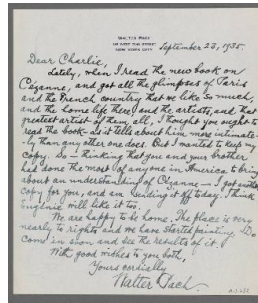 WALTER PACH
NEW YORK CITY
September 23, 1935.
Dear Charlie,
Lately, when I read the new book on
Cézanne, and got all the glimpses of Paris
and the French country that we like so much,
and the home life there and the artists, and that
greatest artist of them, all, I thought you ought to
read the book - as it tells about him more intimate-
-ly than any other one does. But I wanted to keep my
copy. So - thinking that you and your brother
had done the most of anyone in America, to bring
about an understanding of Cézanne - I got another
copy for you, and am sending it off today. I think
Eugénie will like it too.
We are happy to be home. The place is very
nearly to rights and we have started painting. Do
come in soon and see the results of it.
With good wishes to you both,
Yours cordially
Walter Pach